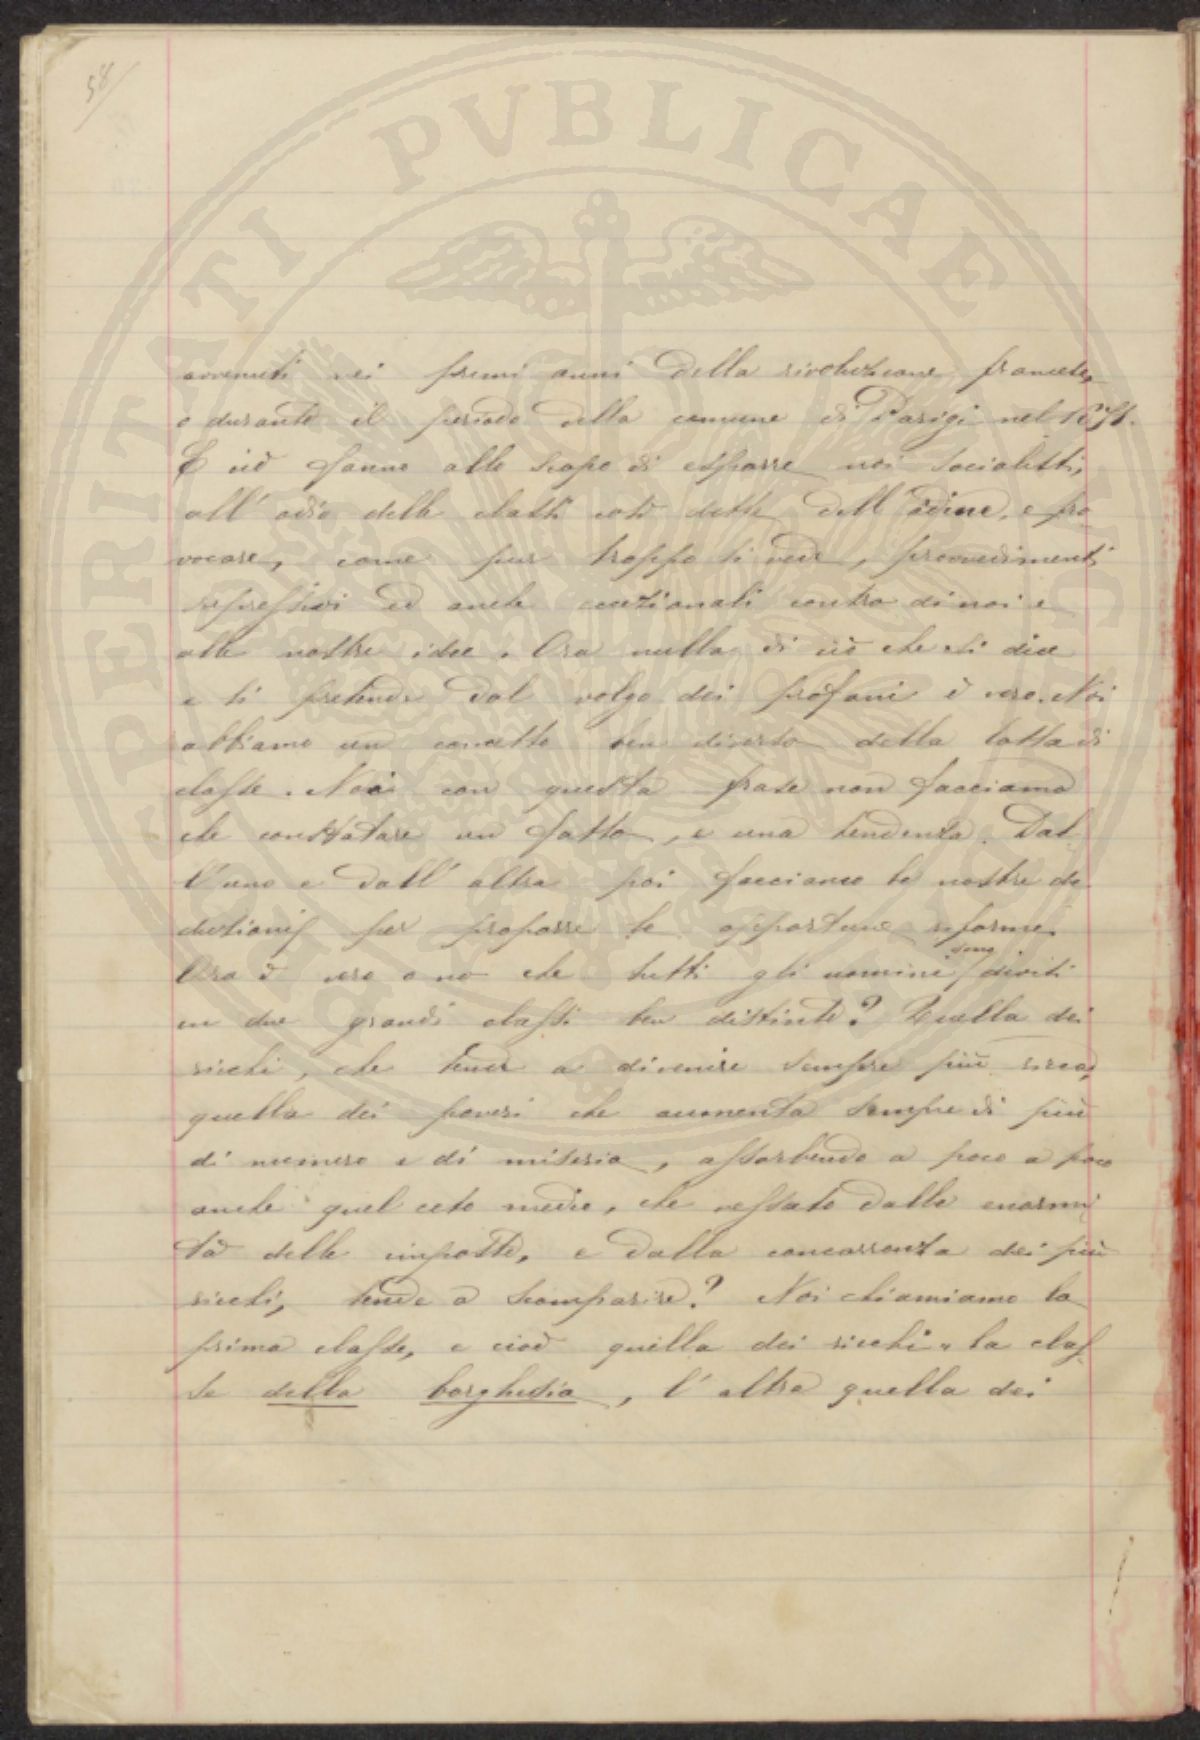 58
PROSPERITATI PUBLICAE
avvenuti nei primi anni della rivoluzione francese,
e durante il periodo della comune di Parigi nel 1871.
E ciò fanno allo scopo di esporre noi socialisti,
all'odio delle classi così dette dell'ordine, e pro
vocare, come pur troppo si vede, provvedimenti
repressivi ed anche eccezionali contro di noi e
alle nostre idee. Ora nulla di ciò che si dice
e si pretende dal volgo dei profani è vero. Noi
abbiamo un concetto ben diverso della lotta di
classe. Noi con questa frase non facciamo
che constatare un fatto, e una tendenza. Dal
l'uno e dall'altra poi facciamo le nostre de
duzioni per proporre le opportune riforme.
Ora è vero o no che tutti gli uomini sono divisi
in due grandi classi ben distinte? Quella dei
ricchi, che tende a divenire sempre più ricca,
quella dei poveri che aumenta sempre di più
di numero e di miseria, assorbendo a poco a poco
anche quel ceto medio, che vessato dalle enormi
tà delle imposte, e dalla concorrenza dei più
ricchi, tende a scomparire? Noi chiamiamo la
prima classe, e cioè quella dei ricchi " la clas
se della borghesia, l'altra quella dei